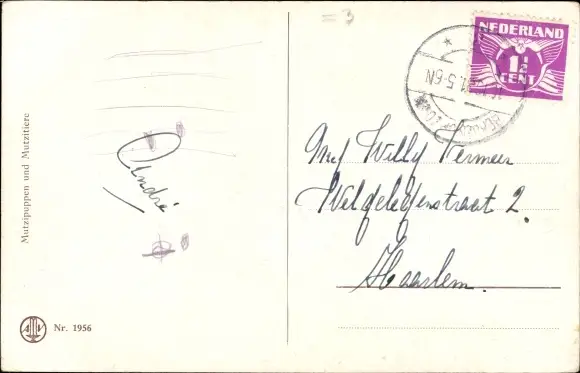 = 3
NEDERLAND
1½
CENT
5-6N
André
Mej Willy Vermeer
Welgelegenstraat 2.
Haarlem.
Mutzipuppen und Mutzitiere
AMV
Nr. 1956